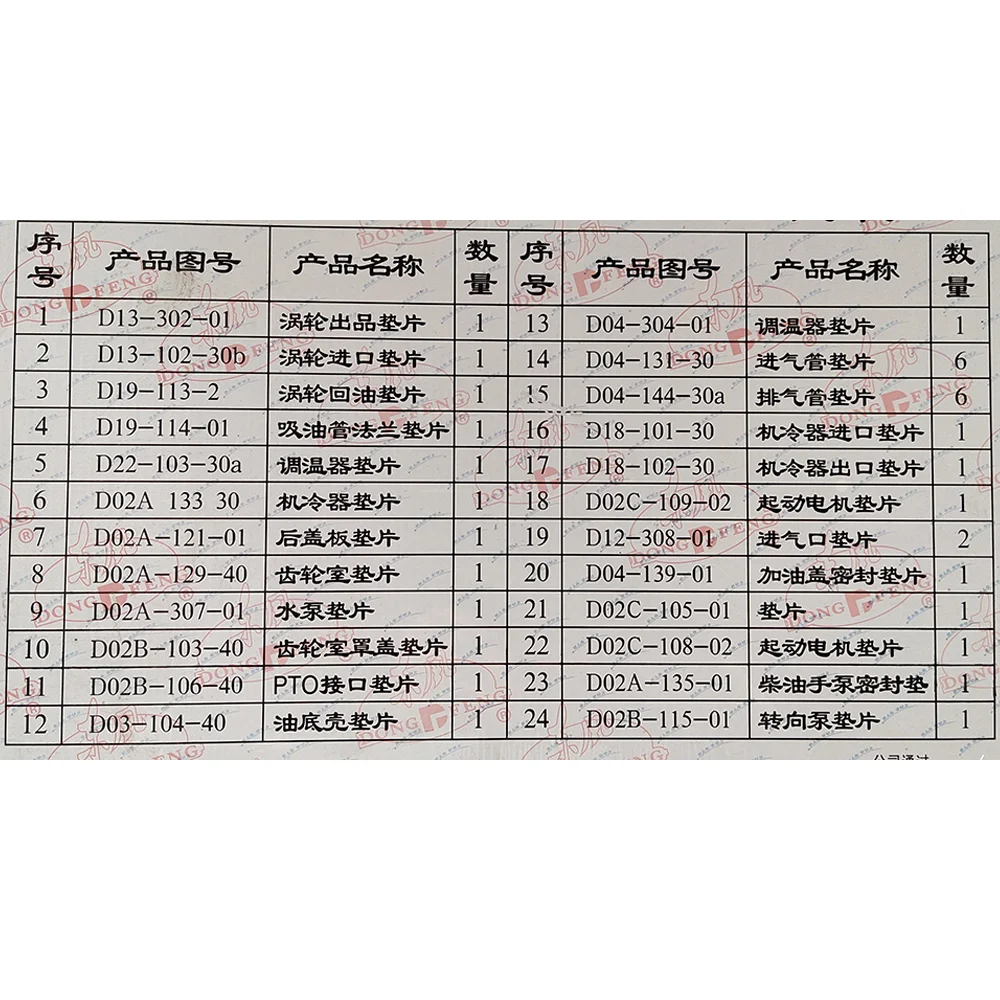 序号 产品图号 产品名称 数量 序号 产品图号 产品名称 数量
1 D13-302-01 涡轮出品垫片 1 13 D04-304-01 调温器垫片 1
2 D13-102-30b 涡轮进口垫片 1 14 D04-131-30 进气管垫片 6
3 D19-113-2 涡轮回油垫片 1 15 D04-144-30a 排气管垫片 6
4 D19-114-01 吸油管法兰垫片 1 16 D18-101-30 机冷器进口垫片 1
5 D22-103-30a 调温器垫片 1 17 D18-102-30 机冷器出口垫片 1
6 D02A 133 30 机冷器垫片 1 18 D02C-109-02 起动电机垫片 1
7 D02A-121-01 后盖板垫片 1 19 D12-308-01 进气口垫片 2
8 D02A-129-40 齿轮室垫片 1 20 D04-139-01 加油盖密封垫片 1
9 D02A-307-01 水泵垫片 1 21 D02C-105-01 垫片 1
10 D02B-103-40 齿轮室罩盖垫片 1 22 D02C-108-02 起动电机垫片 1
11 D02B-106-40 PTO接口垫片 1 23 D02A-135-01 柴油手泵密封垫 1
12 D03-104-40 油底壳垫片 1 24 D02B-115-01 转向泵垫片 1
东风
DONG FENG®